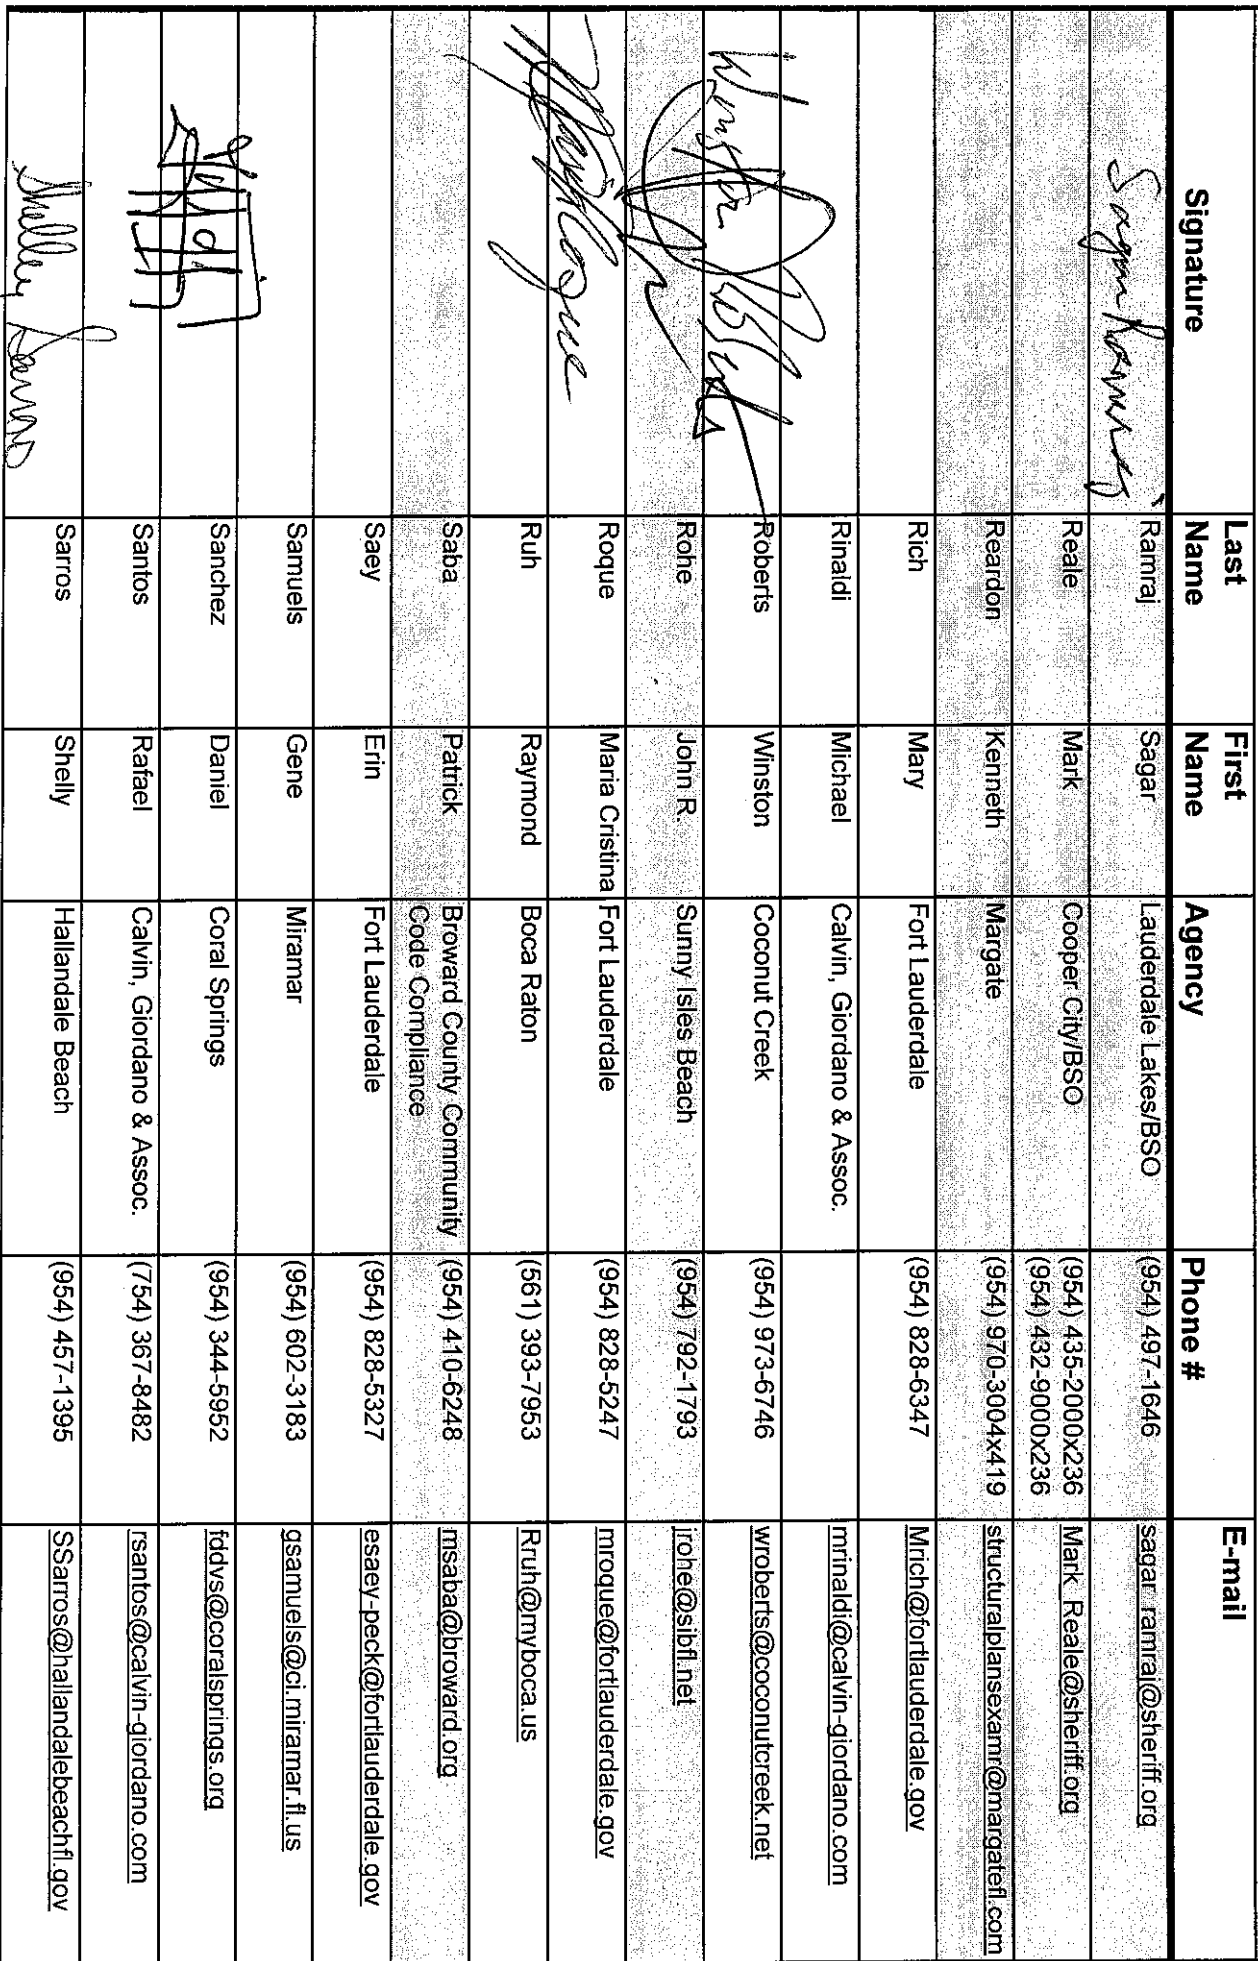 Signature Last Name First Name Agency Phone # E-mail
Sagar Ramraj Ramraj Sagar Lauderdale Lakes/BSO (954) 497-1646 sagar_ramraj@sheriff.org
Reale Mark Cooper City/BSO (954) 435-2000x236 Mark_Reale@sheriff.org
(954) 432-9000x236
Reardon Kenneth Margate (954) 970-3004x419 structuralplansexamr@margatefl.com
Rich Mary Fort Lauderdale (954) 828-6347 Mrich@fortlauderdale.gov
Rinaldi Michael Calvin, Giordano & Assoc. mrinaldi@calvin-giordano.com
Winston Roberts Roberts Winston Coconut Creek (954) 973-6746 wroberts@coconutcreek.net
Rohe John R. Sunny Isles Beach (954) 792-1793 jrohe@sibfl.net
Roque Maria Cristina Fort Lauderdale (954) 828-5247 mroque@fortlauderdale.gov
Ruh Raymond Boca Raton (561) 393-7953 Rruh@myboca.us
Saba Patrick Broward County Community (954) 410-6248 msaba@broward.org
Code Compliance
Saey Erin Fort Lauderdale (954) 828-5327 esaey-peck@fortlauderdale.gov
Samuels Gene Miramar (954) 602-3183 gsamuels@ci.miramar.fl.us
Sanchez Daniel Coral Springs (954) 344-5952 fddvs@coralsprings.org
Santos Rafael Calvin, Giordano & Assoc. (754) 367-8482 rsantos@calvin-giordano.com
Shelley Sarros Sarros Shelly Hallandale Beach (954) 457-1395 SSarros@hallandalebeachfl.gov